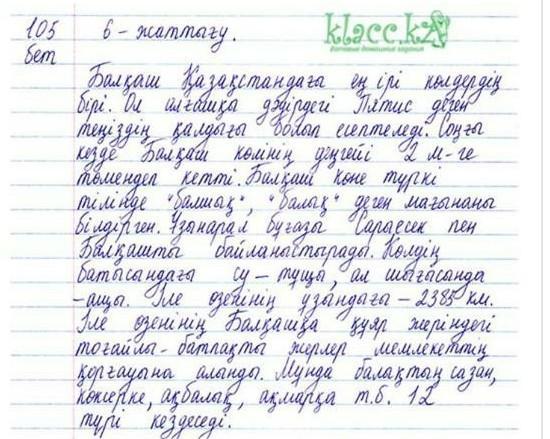 105
бет
6 - жаттығу.
klacc.kz
готовые домашние задания
Балқаш Қазақстандағы ең ірі көлдердің
бірі. Ол алғашқа дәуірдегі Пятис деген
теңіздің қалдығы болып есептеледі. Соңғы
кезде Балқаш көлінің деңгейі 2 м-ге
төмендеп кетті. Балқаш көне түркі
тілінде "балшық", "балық" деген мағынаны
білдірген. Ұзынарал бұғазы Сарыесек пен
Балқашты байланыстырады. Көлдің
батысындағы су - тұщы, ал шығасында
-ащы. Іле өзенінің ұзындығы - 2385 км.
Іле өзенінің Балқашқа құяр жеріндегі
тоғайлы - батпақты жерлер мемлекеттің
қорғауына алынды. Мұнда балақтың сазан,
көксерке, ақбалық, ақмарқа т.б. 12
түрі кездеседі.